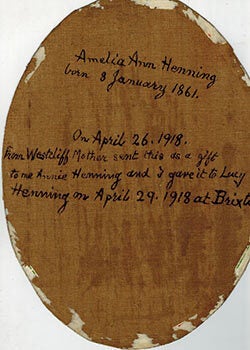 Amelia Ann Henning
born 8 January 1861.
On April 26. 1918.
From Westcliff Mother sent this as a gift
to me Annie Henning and I gave it to Lucy
Henning on April 29. 1918 at